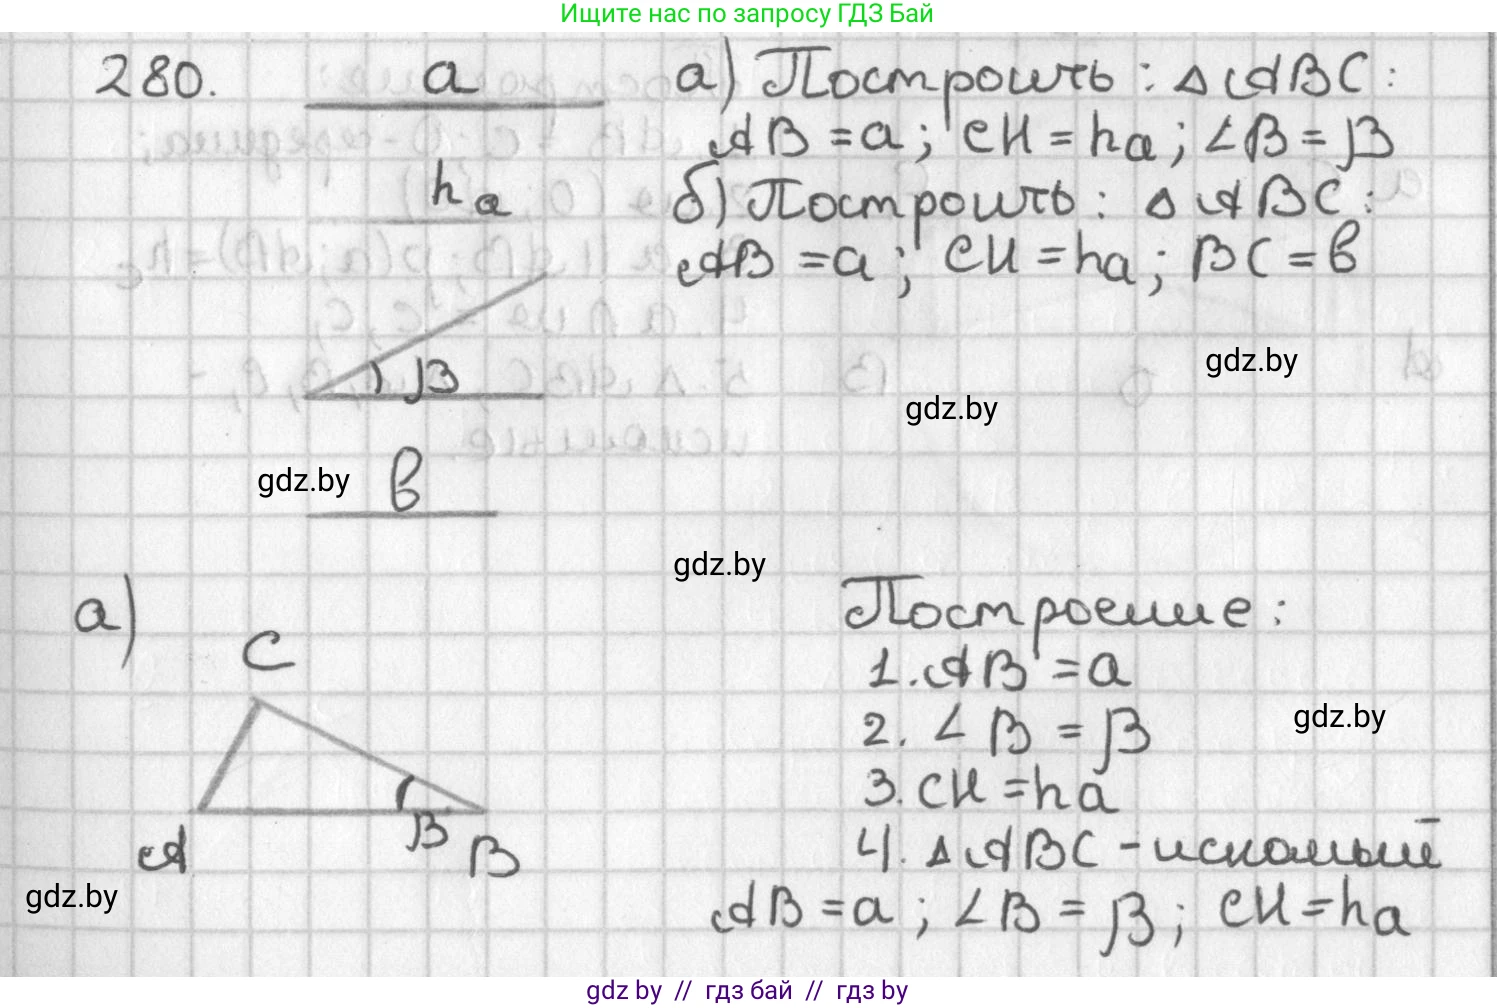 Ищите нас по запросу ГДЗ Бай
280.
a
hₐ
β
в
а) Построить: △ABC:
AB = a; CH = hₐ; ∠B = β
б) Построить: △ABC:
AB = a; CH = hₐ; BC = в
gdz.by
gdz.by
gdz.by
gdz.by
а)
C
A
β
B
gdz.by
Построение:
1. AB = a
2. ∠B = β
gdz.by
3. CH = hₐ
4. △ABC - искомый
AB = a; ∠B = β; CH = hₐ
gdz by // гдз бай // гдз by